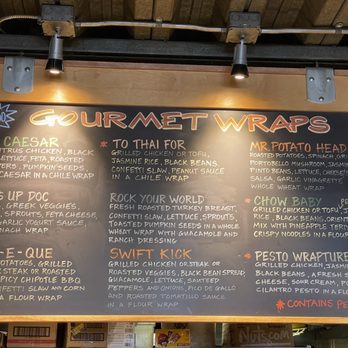 GOURMET WRAPS
CAESAR
CITRUS CHICKEN, BLACK
LETTUCE, FETA, ROASTED
PEPPERS, PUMPKIN SEEDS
CAESAR IN A CHILE WRAP
UP DOC
GREEK VEGGIES,
SPROUTS, FETA CHEESE,
GARLIC YOGURT SAUCE
WRAP
-E-QUE
POTATOES, GRILLED
STEAK OR ROASTED
SPICY CHIPOTLE BBQ
SLAW AND CORN
FLOUR WRAP
TO THAI FOR
GRILLED CHICKEN OR TOFU,
JASMINE RICE, BLACK BEANS,
CONFETTI SLAW, PEANUT SAUCE
IN A CHILE WRAP
ROCK YOUR WORLD
ROASTED TURKEY BREAST,
CONFETTI SLAW, LETTUCE, SPROUTS,
TOASTED PUMPKIN SEEDS IN A WHOLE
WHEAT WRAP WITH GUACAMOLE AND
RANCH DRESSING
SWIFT KICK
GRILLED CHICKEN OR STEAK OR
ROASTED VEGGIES, BLACK BEAN SPREAD,
GUACAMOLE, LETTUCE, SAUTEED
PEPPERS AND ONIONS, PICO DE GALLO
AND ROASTED TOMATILLO SAUCE
IN A FLOUR WRAP
MR. POTATO HEAD
ROASTED POTATOES, SPINACH, GRILLED
PORTOBELLO MUSHROOM, JASMINE
PINTO BEANS, LETTUCE, CHEESE,
SALSA, GARLIC VINAIGRETTE
WHOLE WHEAT WRAP
CHOW BABY
GRILLED CHICKEN OR TOFU,
RICE, BLACK BEANS, ORIENTAL
MIX WITH PINEAPPLE TERIYAKI
CRISPY NOODLES IN A FLOUR
PESTO WRAPTURE
GRILLED CHICKEN, JASMINE
BLACK BEANS, A FRESH
CHEESE, SOUR CREAM,
CILANTRO PESTO IN A FLOUR
CONTAINS PE